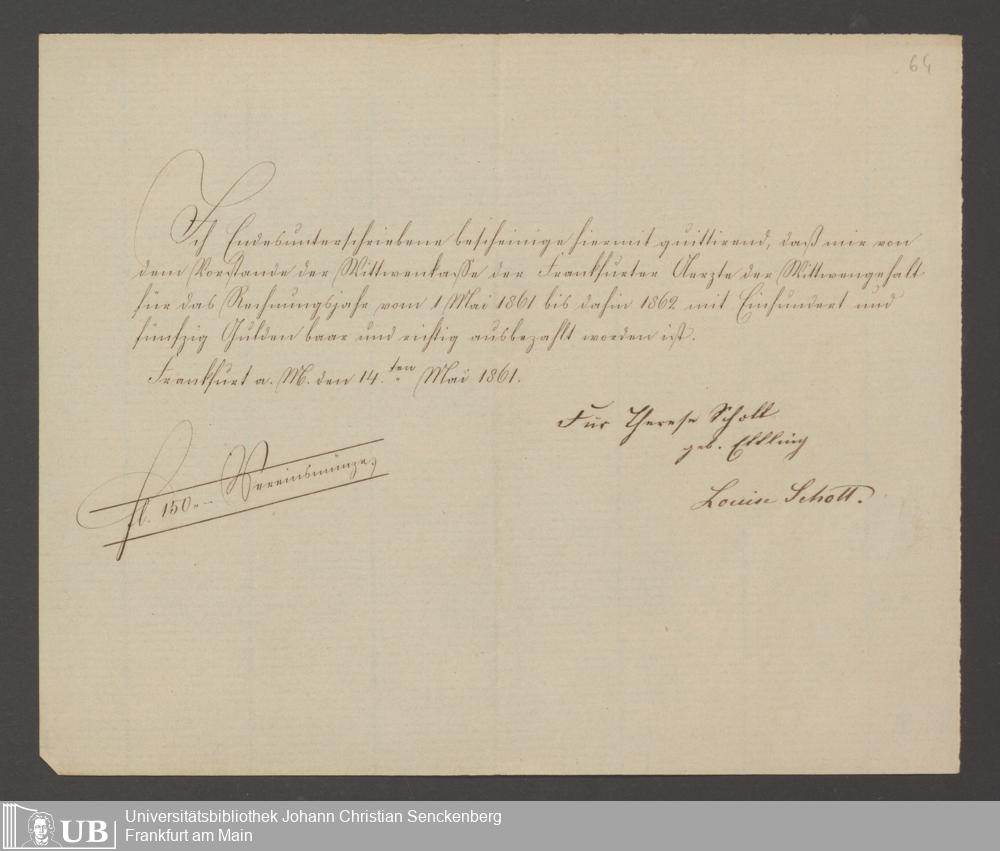 64
Ich Endesunterschriebene bescheinige hiermit quittirend, daß mir von
dem Vorstande der Wittwenkasse der Frankfurter Aerzte der Wittwengehalt
für das Rechnungsjahr vom 1 Mai 1861 bis dahin 1862 mit Einhundert und
fünfzig Gulden baar und richtig ausbezahlt worden ist.
Frankfurt a. M. den 14.ten Mai 1861.
Für Therese Schott
geb. Ebling
Louise Schott.
fl. 150.— Vereinsmünze,
UB
Universitätsbibliothek Johann Christian Senckenberg
Frankfurt am Main